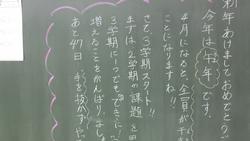 年あけましておめでとう
今年は午年です。
4月になると、全員が
ことになりますね!!
さて、3学期スタート!!
まずは、2学期の課題を
3学期に一つでもできること
増えることをがんばりましょ
あと47日 手を抜かず